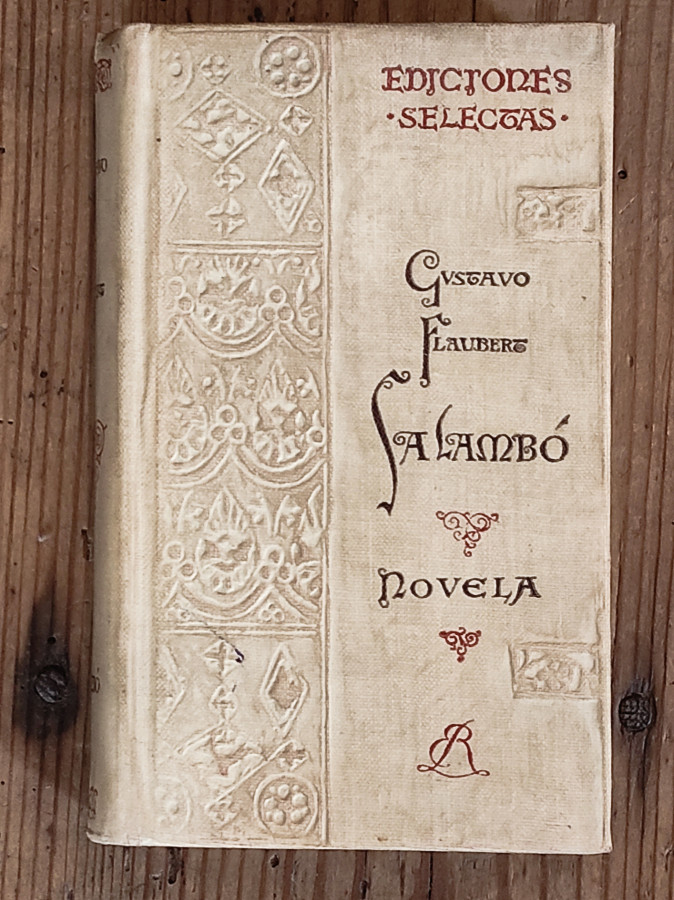 EDICIONES
·SELECTAS·
GUSTAVO
FLAUBERT
SALAMBÓ
NOVELA